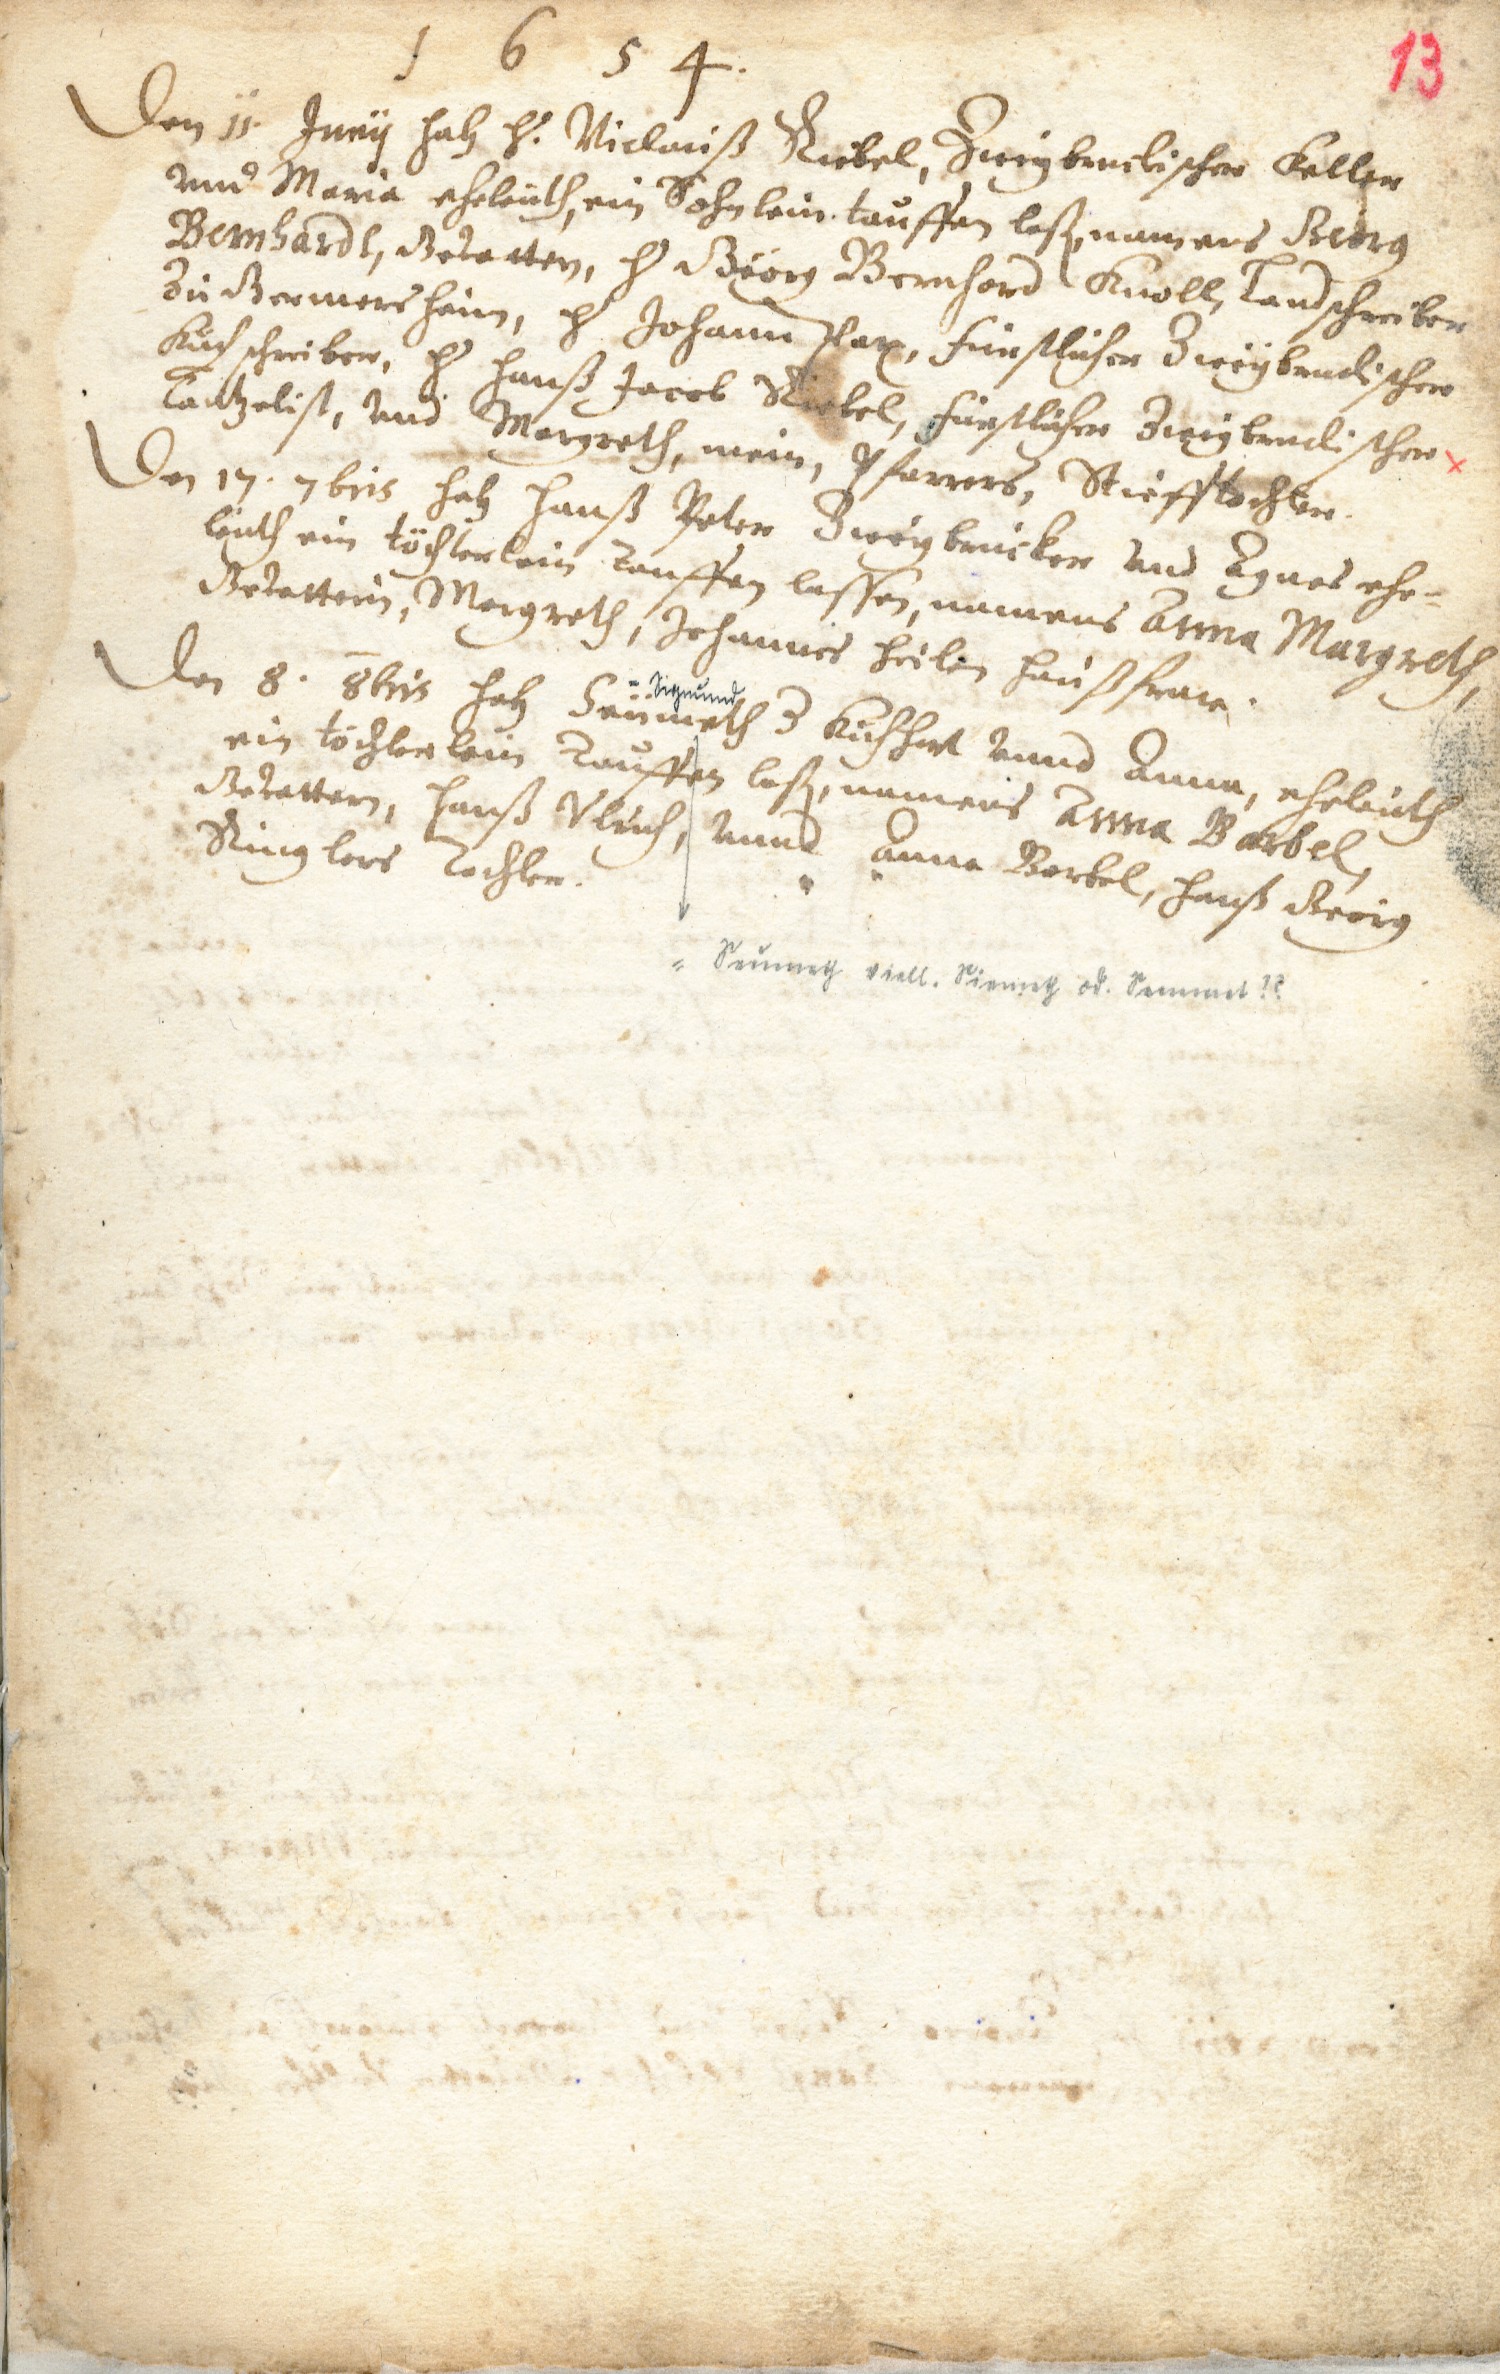 1 6 5 4.
13
Den 11. Junÿ hatt H. Niclauß Ruebel, Zweÿbruckischer Keller
und Maria eheleüth, ein Söhnlein tauffen laßen, namens Georg
Bernhardt, Gevattern, H Georg Bernhard Knoll, Landschreiber
zu Germersheim, H Johann Pax, Fürstlicher Zweÿbruckischer
Küchschreiber, H Hanß Jacob Ruebel, Fürstlicher Zweÿbruckischer
Cantzelist, und Margreth, mein, Pfarrers, Stieffdochter.
Den 17. 7bris hatt Hanß Peter Zweÿbrücker und Agnes ehe-
leüth ein töchterlein tauffen lassen, namens Anna Margreth,
Gevatterin, Margreth, Johannes Haußfraw.
= Sigmund
Den 8. 8bris hatt Seümeth Kuhhirt unnd Anna, eheleüth
ein töchterlein tauffen laßen, namens Anna Barbel,
Gevattern, Hanß Ulrich, unnd Anna Barbel, Hanß Georg
Ringlers Tochter.
= Seumeth viell. od. !?